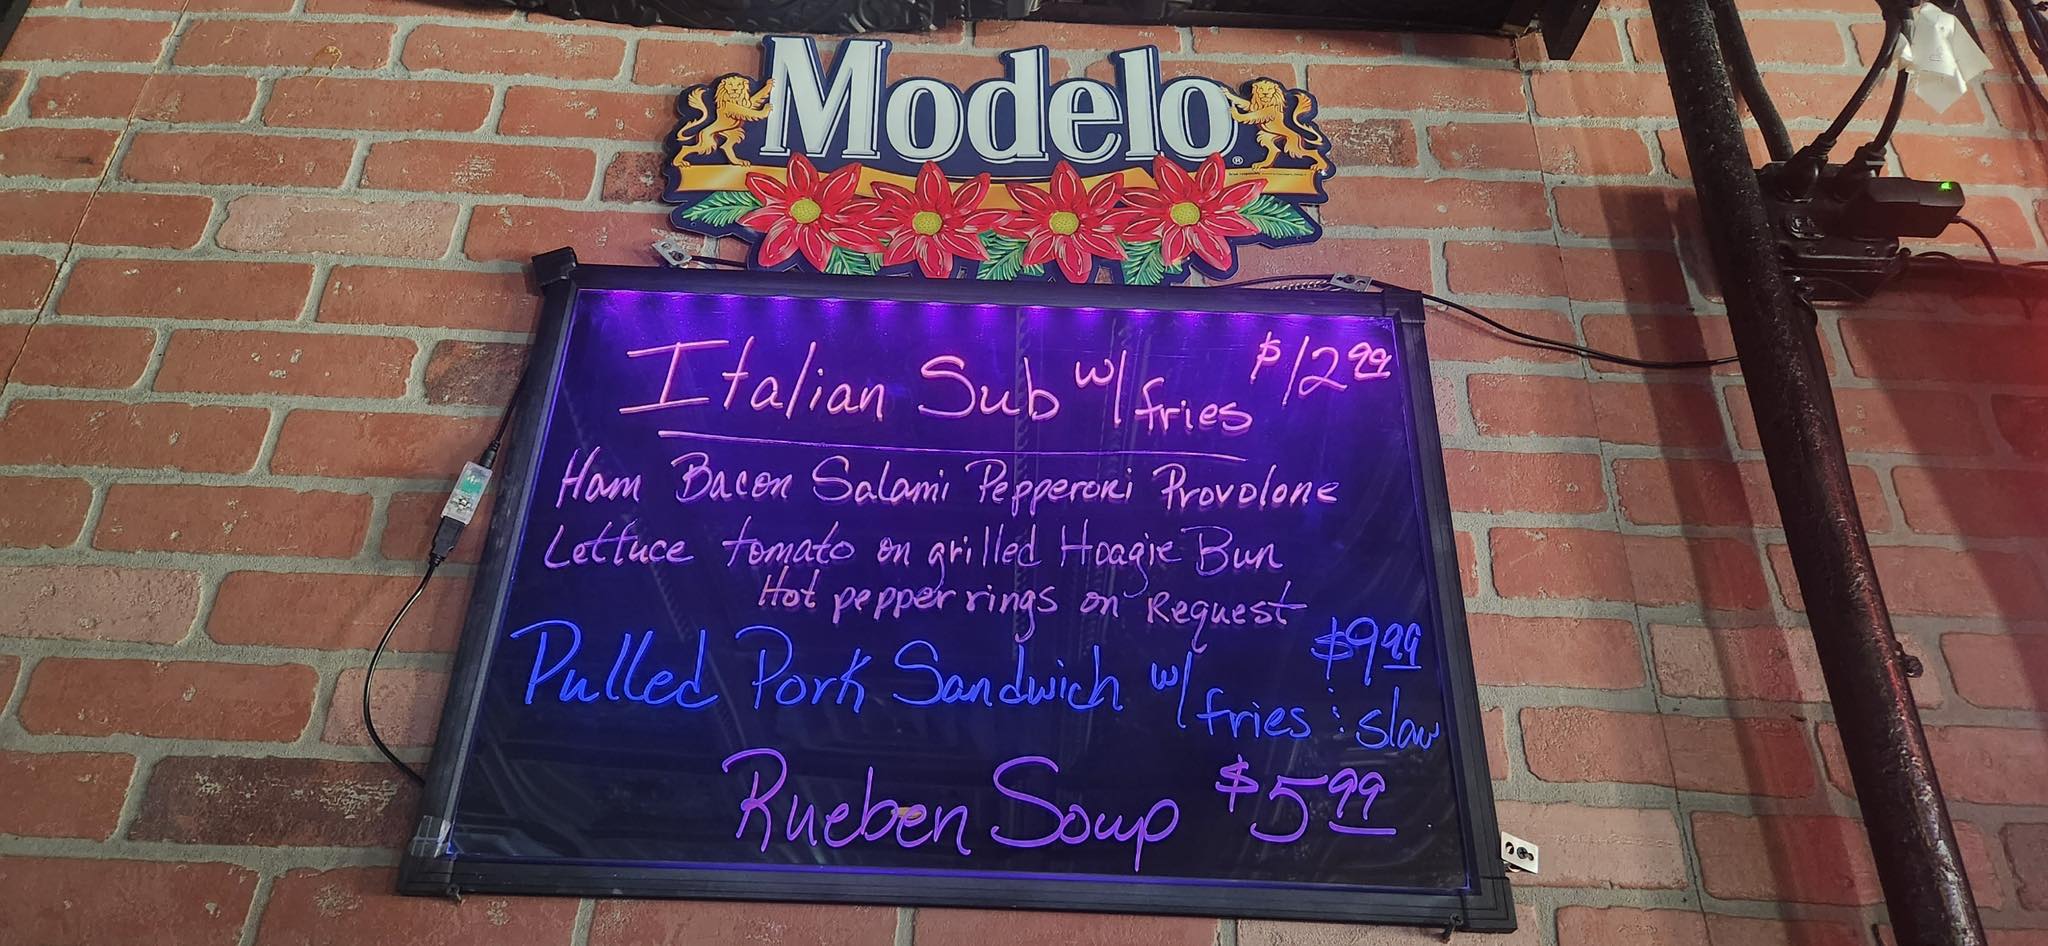 Modelo
Italian Sub w/ fries $12.99
Ham Bacon Salami Pepperoni Provolone
Lettuce tomato on grilled Hoagie Bun
Hot pepper rings on Request
Pulled Pork Sandwich w/ fries : slaw $9.99
Rueben Soup $5.99